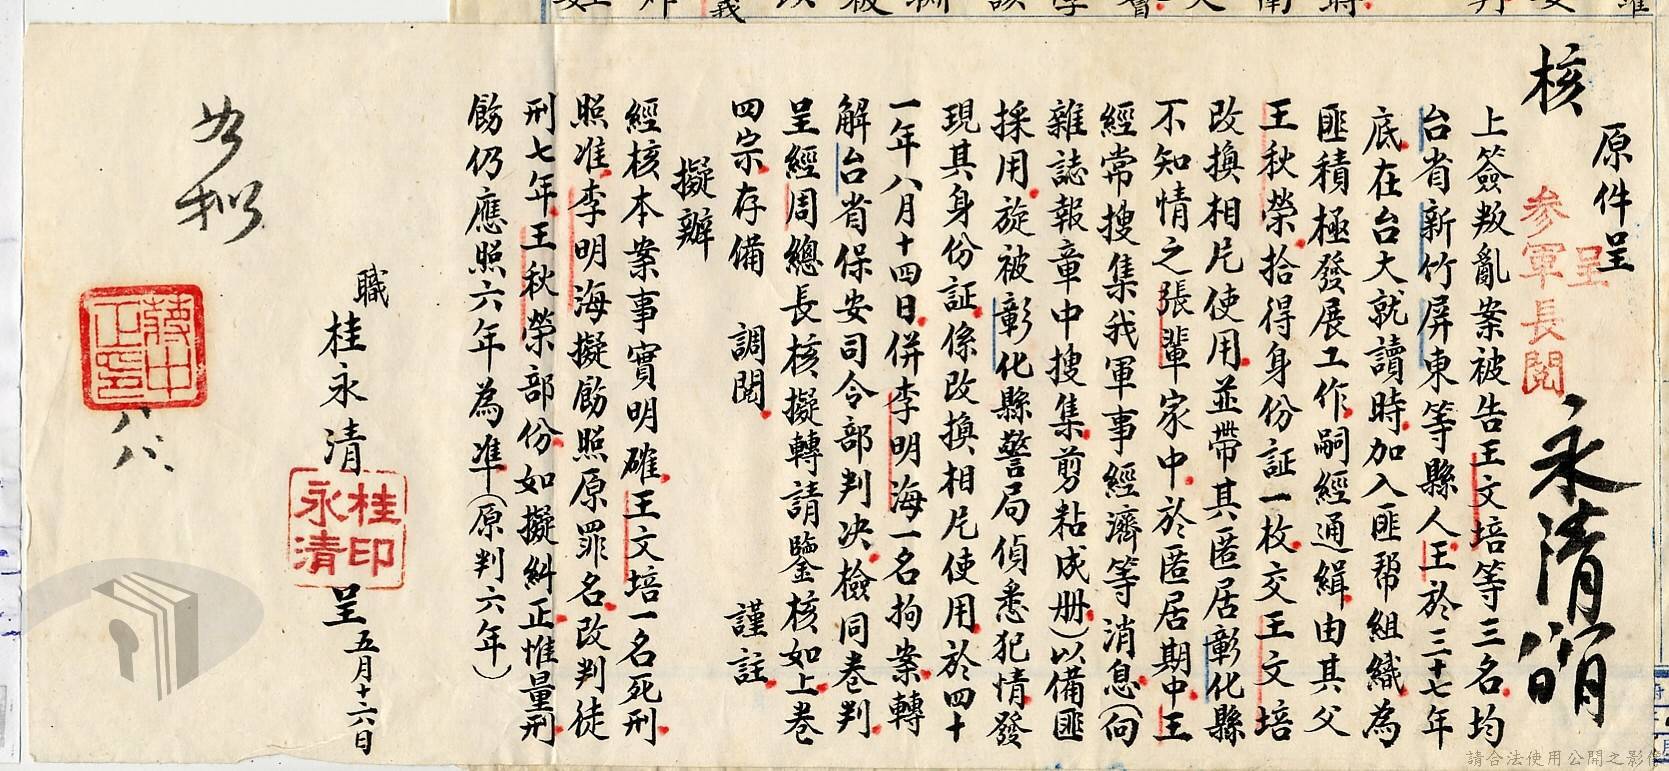 原件呈
核
呈
參軍長閱
永清
上簽叛亂案被告王文培等三名均
台省新竹屏東等縣人王於三十七年
底在台大就讀時加入匪幫組織為
匪積極發展工作嗣經通緝由其父
王秋榮拾得身份証一枚交王文培
改換相片使用並帶其匿居彰化縣
不知情之張輩家中於匿居期中王
經常搜集我軍事經濟等消息(向
雜誌報章中搜集剪粘成册)以備匪
採用旋被彰化縣警局偵悉犯情發
現其身份証係改換相片使用於四十
一年八月十四日併李明海一名拘案轉
解台省保安司令部判決檢同卷判
呈經周總長核擬轉請鑒核如上卷
四宗存備 調閱 謹註
擬辦
經核本案事實明確王文培一名死刑
照准李明海擬飭照原罪名改判徒
刑七年王秋榮部份如擬糾正惟量刑
飭仍應照六年為準(原判六年)
職
桂永清
桂永清印
呈
五月十六日
如擬
蔣中正印
八八
請合法使用公開之影像